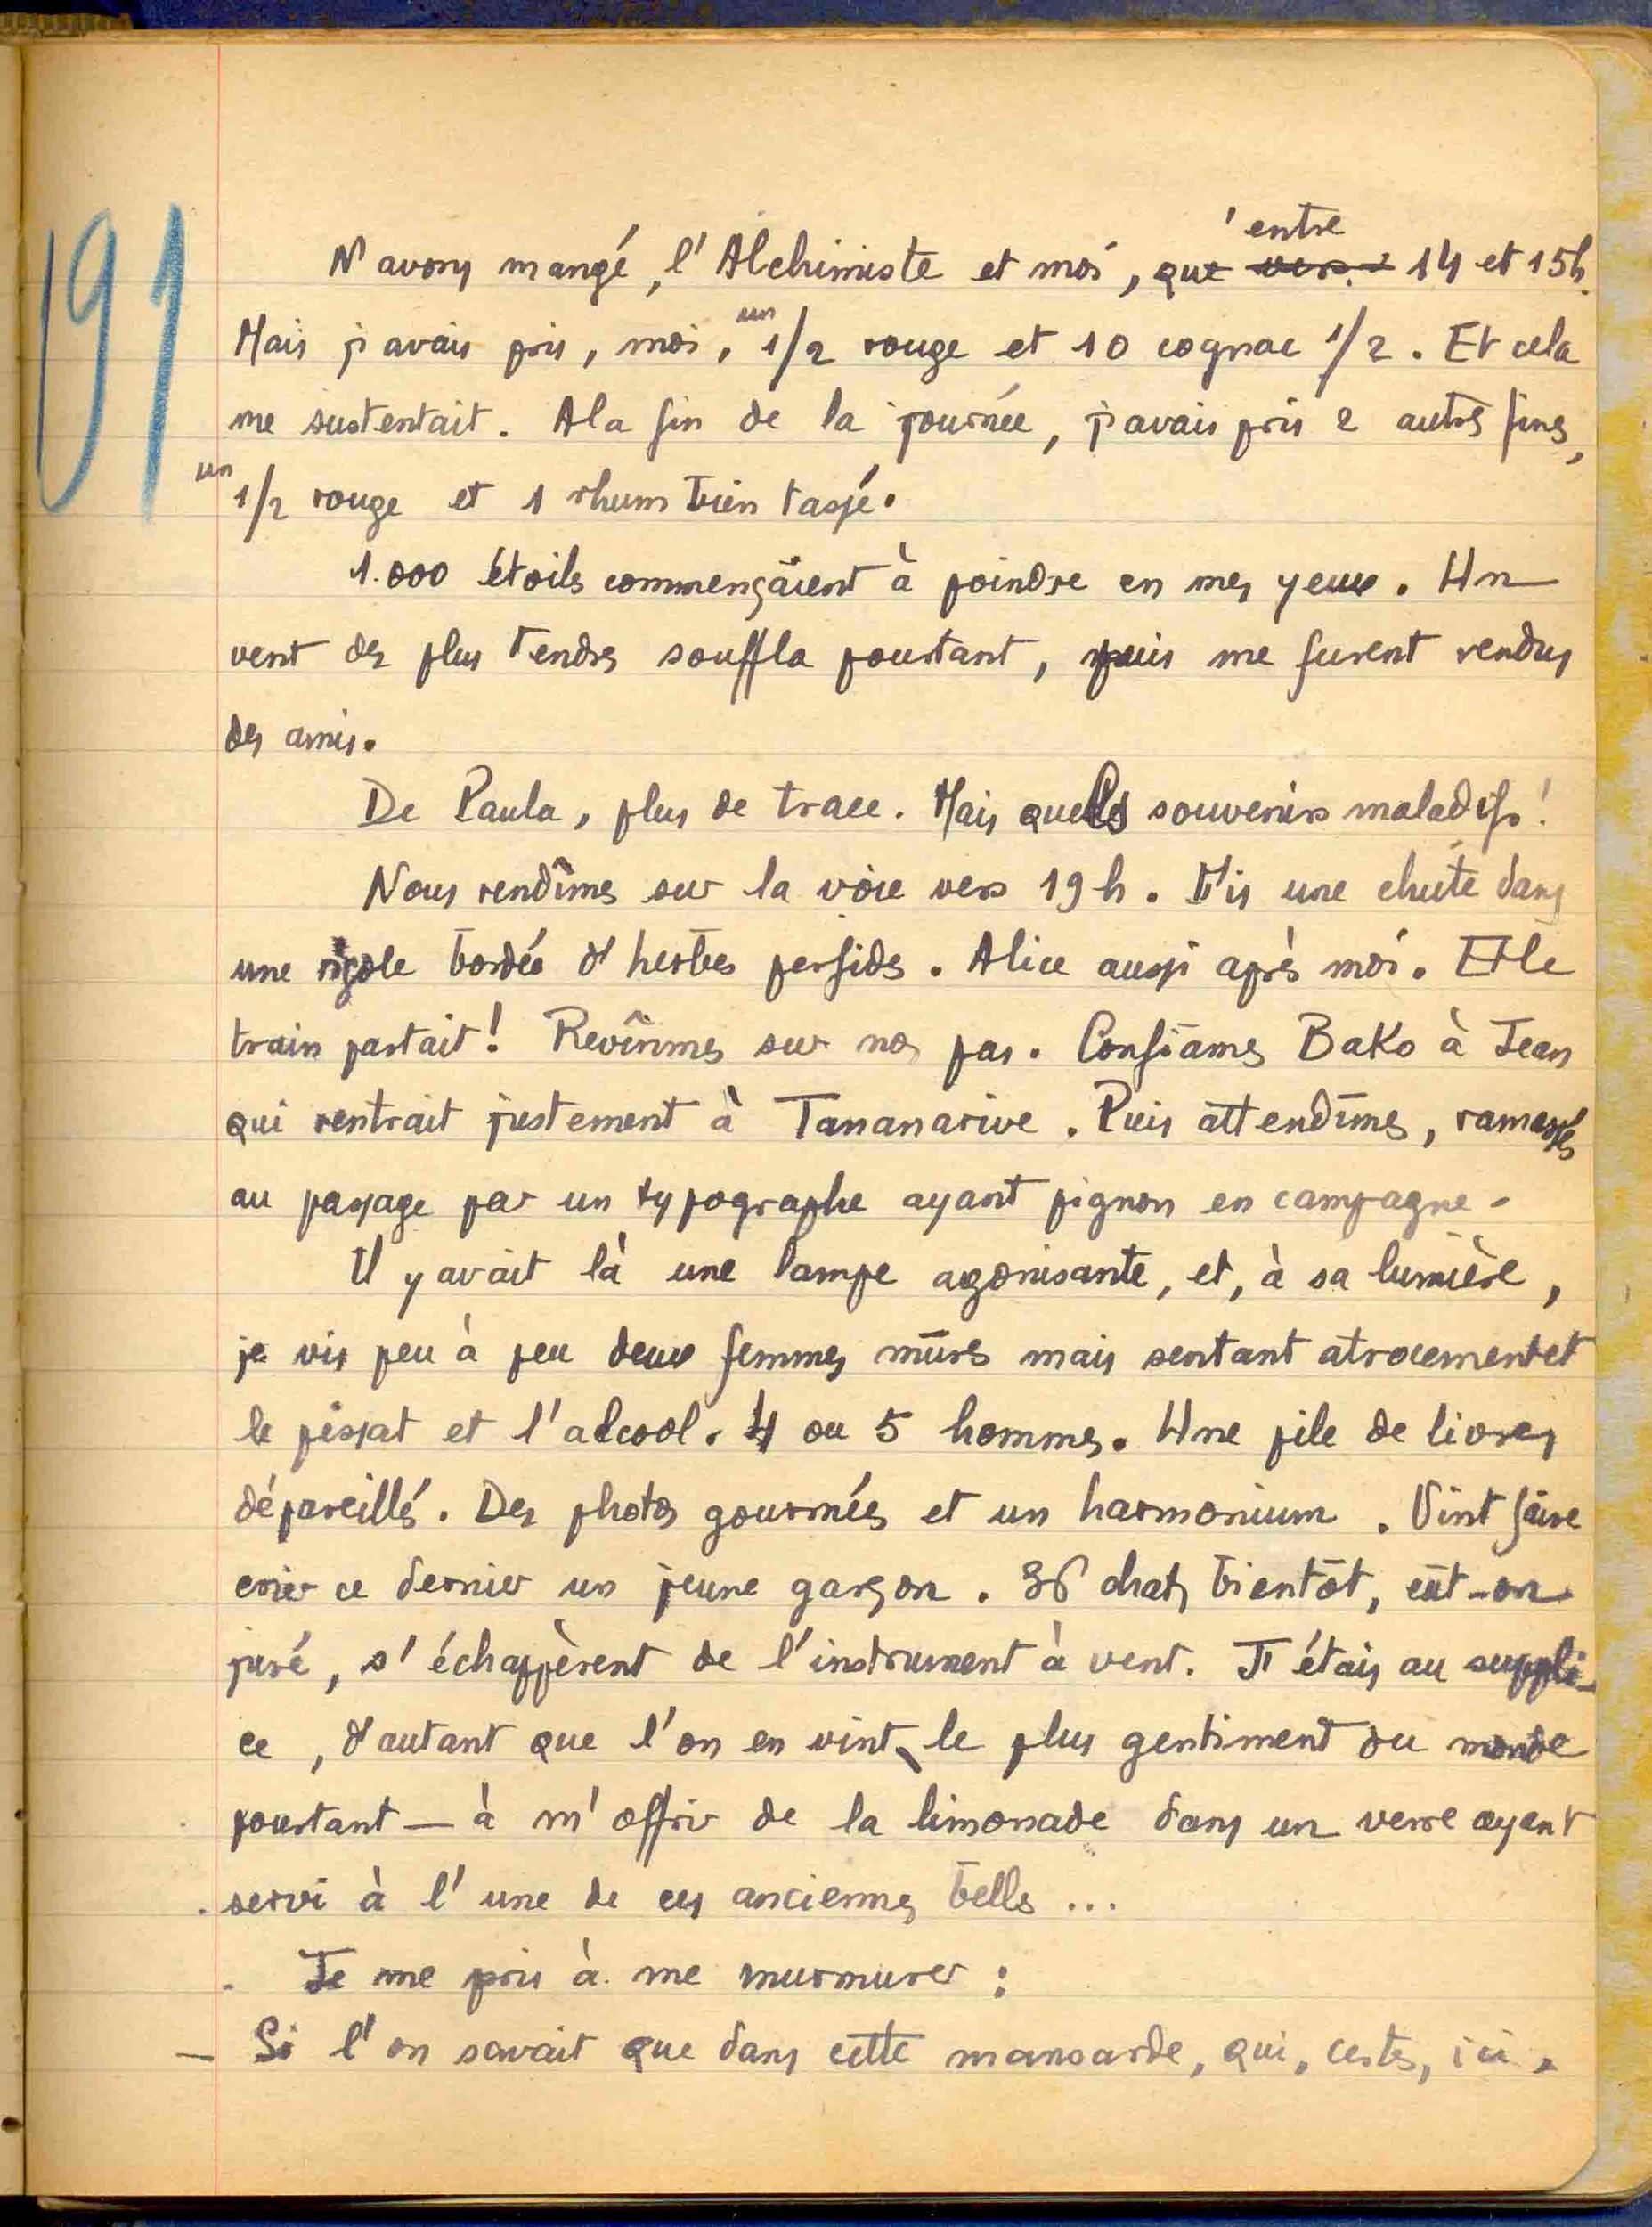 191
N'avons mangé, l'Alchimiste et moi, qu'entre ~~vers~~ 14 et 15h.
Mais j'avais pris, moi, un 1/2 rouge et 10 cognac 1/2. Et cela
me sustentait. A la fin de la journée, j'avais pris 2 autres fines,
un 1/2 rouge et 1 rhum bien tassé.
1.000 étoiles commençaient à poindre en mes yeux. Un
vent des plus tendres souffla pourtant, puis me furent rendus
des amis.
De Paula, plus de trace. Mais quels souvenirs maladifs!
Nous rendîmes sur la voie vers 19 h. Fis une chute dans
une rigole bordée d'herbes perfides. Alice aussi après moi. Et le
train partait! Revînmes sur nos pas. Confiâmes Bako à Jean
qui rentrait justement à Tananarive. Puis attendîmes, ramassés
au passage par un typographe ayant pignon en campagne.
Il y avait là une lampe agonisante, et, à sa lumière,
je vis peu à peu deux femmes mûres mais sentant atrocement et
le pissat et l'alcool. 4 ou 5 hommes. Une pile de livres
dépareillés. Des photos gourmées et un harmonium. Vint faire
crier ce dernier un jeune garçon. 36 chats bientôt, eût-on
juré, s'échappèrent de l'instrument à vent. J'étais au suppli-
ce, d'autant que l'on en vint, le plus gentiment du monde
pourtant — à m'offrir de la limonade dans un verre ayant
servi à l'une de ces anciennes belles ...
Je me pris à me murmurer :
— Si l'on savait que dans cette mansarde, qui, certes, ici,